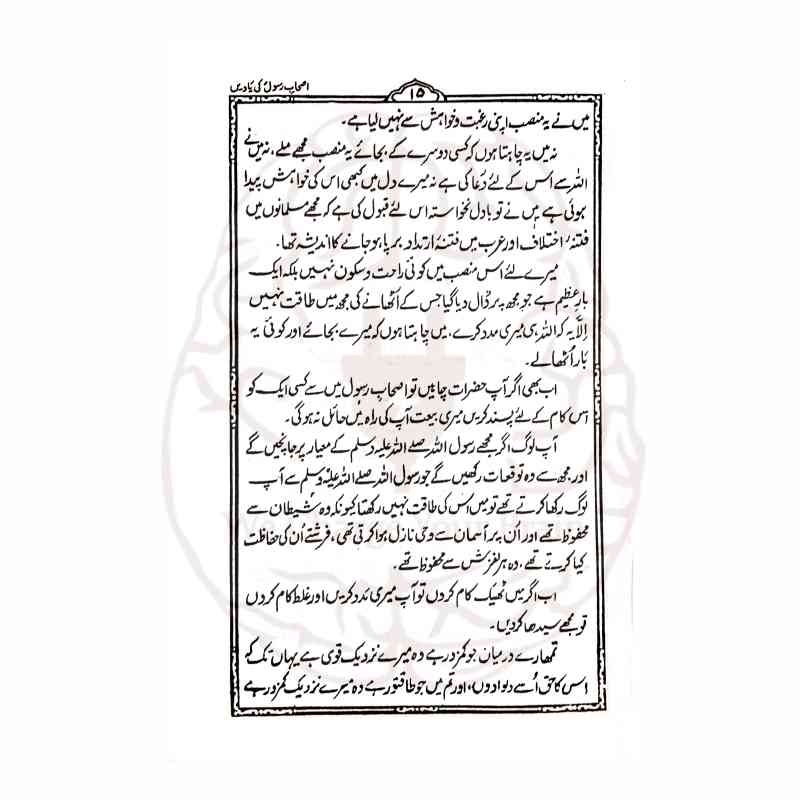 اصحاب رسولؐ کی یادیں
۱۵
میں نے یہ منصب اپنی رغبت وخواہش سے نہیں لیا ہے۔
نہ میں یہ چاہتا ہوں کہ کسی دوسرے کے بجائے یہ منصب مجھے ملے، نہ میں نے
اللہ سے اس کے لئے دُعا کی ہے نہ میرے دل میں کبھی اس کی خواہش پیدا
ہوئی ہے میں نے تو بادل نخواستہ اس لئے قبول کی ہے کہ مجھے مسلمانوں میں
فتنۂ اختلاف اور عرب میں فتنۂ ارتداد برپا ہو جانے کا اندیشہ تھا۔
میرے لئے اس منصب میں کوئی راحت وسکون نہیں بلکہ ایک
بارِ عظیم ہے جو مجھ پر ڈال دیا گیا جس کے اُٹھانے کی مجھ میں طاقت نہیں
اِلاّ یہ کہ اللہ ہی میری مدد کرے، میں چاہتا ہوں کہ میرے بجائے اور کوئی یہ
بار اُٹھا لے۔
اب بھی اگر آپ حضرات چاہیں تو اصحاب رسولؐ میں سے کسی ایک کو
اس کام کے لئے پسند کریں میری بیعت آپ کی راہ میں حائل نہ ہوگی۔
آپ لوگ اگر مجھے رسول اللہ صلے اللہ علیہ وسلم کے معیار پر جانچیں گے
اور مجھ سے وہ توقعات رکھیں گے جو رسول اللہ صلے اللہ علیہ وسلم سے آپ
لوگ رکھا کرتے تھے تو میں اُس کی طاقت نہیں رکھتا کیونکہ وہ شیطان سے
محفوظ تھے اور اُن پر آسمان سے وحی نازل ہوا کرتی تھی، فرشتے اُن کی حفاظت
کیا کرتے تھے، وہ ہر لغزش سے محفوظ تھے۔
اب اگر میں ٹھیک کام کروں تو آپ میری مدد کریں اور غلط کام کروں
تو مجھے سیدھا کر دیں۔
تمھارے درمیان جو کمزور ہے وہ میرے نزدیک قوی ہے یہاں تک کہ
اس کا حق اُسے دلوا دوں، اور تم میں جو طاقتور ہے وہ میرے نزدیک کمزور ہے